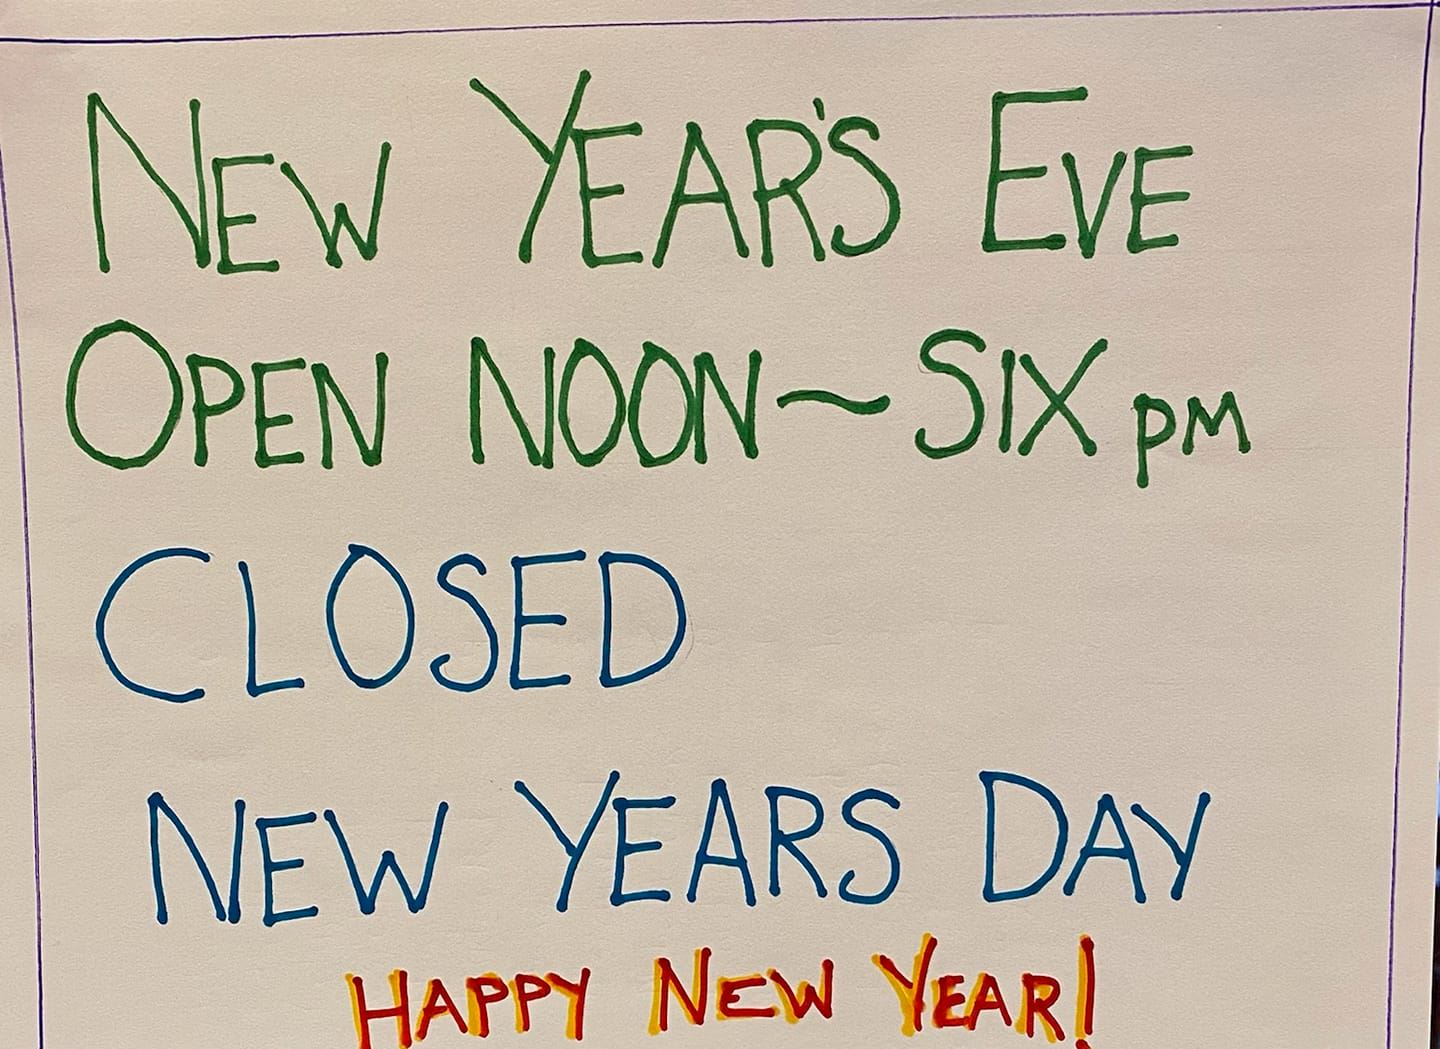 NEW YEAR'S EVE
OPEN NOON~SIX pm
CLOSED
NEW YEARS DAY
HAPPY NEW YEAR!